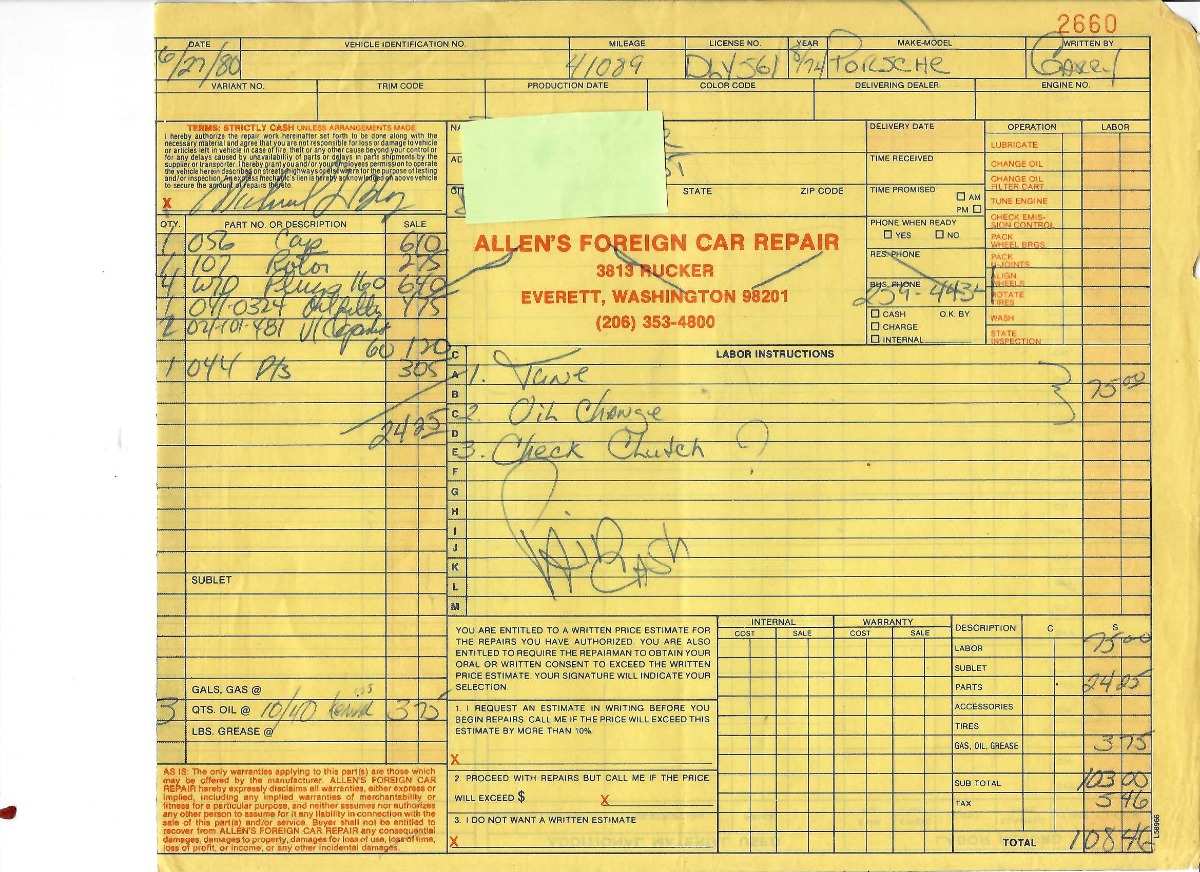 2660
DATE VEHICLE IDENTIFICATION NO. MILEAGE LICENSE NO. YEAR MAKE-MODEL WRITTEN BY
6/27/80 41089 DLV561 8/74 PORSCHE Garry
VARIANT NO. TRIM CODE PRODUCTION DATE COLOR CODE DELIVERING DEALER ENGINE NO.
TERMS: STRICTLY CASH UNLESS ARRANGEMENTS MADE
I hereby authorize the repair work hereinafter set forth to be done along with the
necessary material and agree that you are not responsible for loss or damage to vehicle
or articles left in vehicle in case of fire, theft or any other cause beyond your control or
for any delays caused by unavailability of parts or delays in parts shipments by the
supplier or transporter. I hereby grant you and/or your employees permission to operate
the vehicle herein described on streets, highways or elsewhere for the purpose of testing
and/or inspection. An express mechanic's lien is hereby acknowledged on above vehicle
to secure the amount of repairs thereto.
X
NA
AD
STATE ZIP CODE
DELIVERY DATE
TIME RECEIVED
TIME PROMISED
AM
PM
PHONE WHEN READY
YES NO
RES. PHONE
BUS. PHONE
259-443
CASH O.K. BY
CHARGE
INTERNAL
OPERATION LABOR
LUBRICATE
CHANGE OIL
CHANGE OIL
FILTER CART.
TUNE ENGINE
CHECK EMIS-
SION CONTROL
PACK
WHEEL BRGS.
PACK
U-JOINTS
ALIGN
WHEELS
ROTATE
TIRES
WASH
STATE
INSPECTION
ALLEN'S FOREIGN CAR REPAIR
3813 RUCKER
EVERETT, WASHINGTON 98201
(206) 353-4800
QTY. PART NO. OR DESCRIPTION SALE
1 056 Cap 610
1 107 Rotor 275
4 Plugs 160 640
1 041-0324 475
2 021-101-481 60 120
1 044 Pts 305
2425
SUBLET
GALS, GAS @
3 QTS. OIL @ 10/40 125 375
LBS. GREASE @
LABOR INSTRUCTIONS
C
A 1. Tune 75 00
B
C 2. Oil Change
D
E 3. Check Clutch ?
F
G
H
I
J
K CASH
L
M
AS IS: The only warranties applying to this part(s) are those which
may be offered by the manufacturer. ALLEN'S FOREIGN CAR
REPAIR hereby expressly disclaims all warranties, either express or
implied, including any implied warranties of merchantability or
fitness for a particular purpose, and neither assumes nor authorizes
any other person to assume for it any liability in connection with the
sale of this part(s) and/or service. Buyer shall not be entitled to
recover from ALLEN'S FOREIGN CAR REPAIR any consequential
damages, damages to property, damages for loss of use, loss of time,
loss of profit, or income, or any other incidental damages.
YOU ARE ENTITLED TO A WRITTEN PRICE ESTIMATE FOR
THE REPAIRS YOU HAVE AUTHORIZED. YOU ARE ALSO
ENTITLED TO REQUIRE THE REPAIRMAN TO OBTAIN YOUR
ORAL OR WRITTEN CONSENT TO EXCEED THE WRITTEN
PRICE ESTIMATE. YOUR SIGNATURE WILL INDICATE YOUR
SELECTION.
1. I REQUEST AN ESTIMATE IN WRITING BEFORE YOU
BEGIN REPAIRS. CALL ME IF THE PRICE WILL EXCEED THIS
ESTIMATE BY MORE THAN 10%.
X
2. PROCEED WITH REPAIRS BUT CALL ME IF THE PRICE
WILL EXCEED $ X
3. I DO NOT WANT A WRITTEN ESTIMATE
X
INTERNAL WARRANTY
COST SALE COST SALE
DESCRIPTION C S
LABOR 75 00
SUBLET
PARTS 24 25
ACCESSORIES
TIRES
GAS, OIL, GREASE 3 75
SUB TOTAL 103 00
TAX 5 46
TOTAL 108 46
L58966